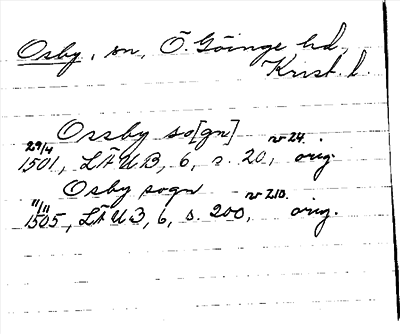 Osby, sn, Ö. Göinge hd,
Krist. l.
Orsby so[gn]
29/4 nr 24.
1501, LÄUB, 6, s. 20, orig.
Osby sogn
11/11 nr 210.
1505, LÄUB, 6, s. 200, orig.